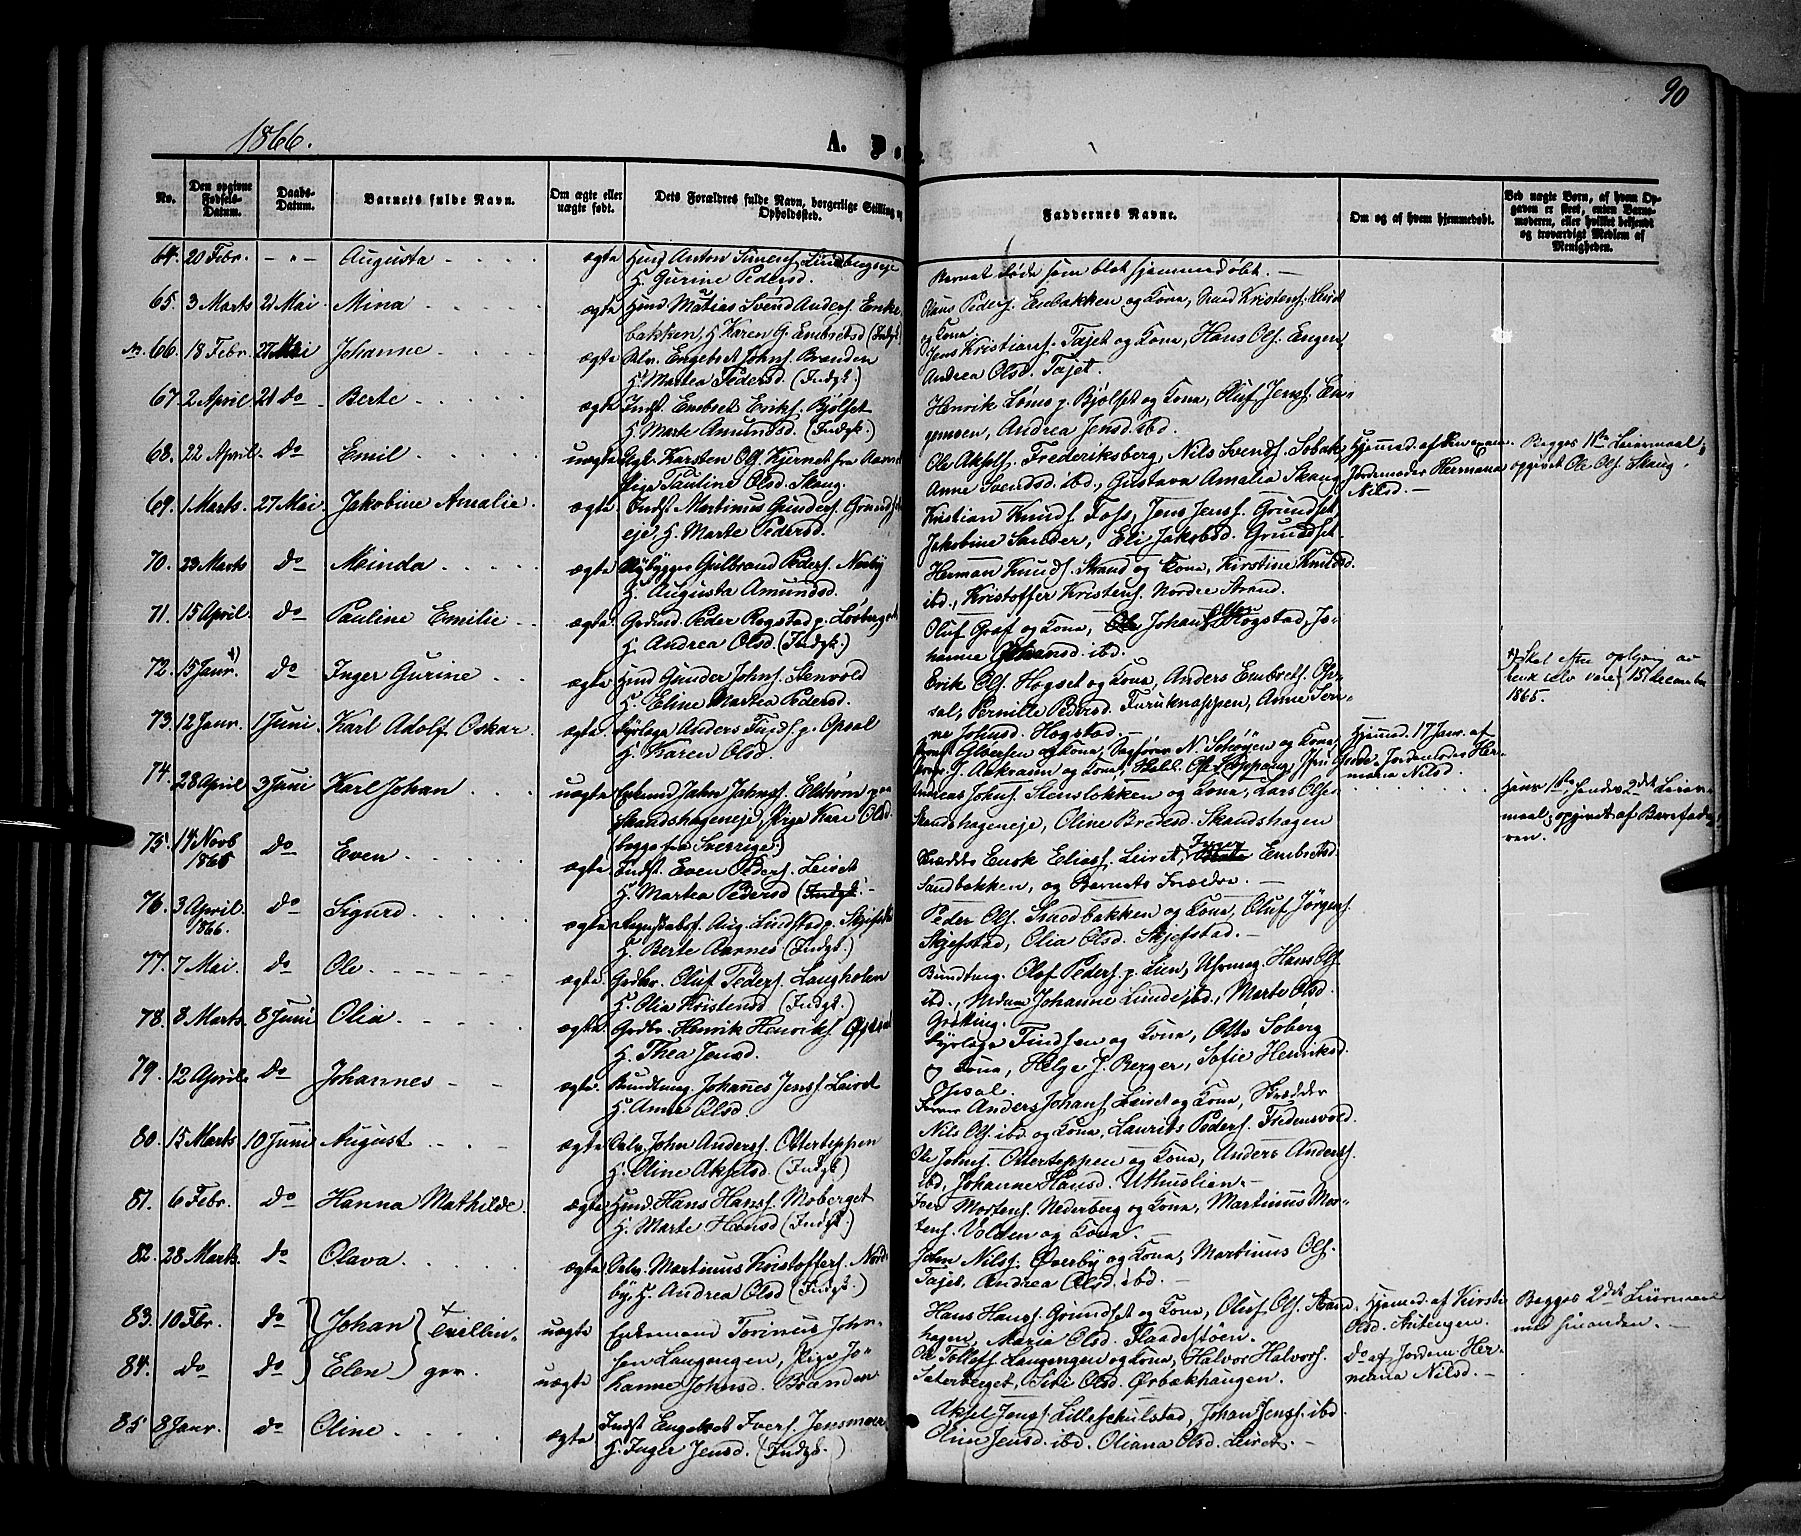 90
1866.
A. D.
No.
Den opgivne Fødsels-Datum.
Daabs-Datum.
Barnets fulde Navn.
Om ægte eller uægte født.
Dets Forældres fulde Navn, borgerlige Stilling og Opholdssted.
Faddernes Navne.
Om og af hvem hjemmedøbt.
Ved uægte Børn, af hvem Opgaven er skeet, enten Barnemoderen, eller hvilket bekjendt og troværdigt Medlem af Menigheden.
64. 20 Febr. - " - Augusta ægte Hmd Anton Simens.
H. Gurine Pedersd.
Barnet døde som blot hjemmedøbt. -
65. 3 Marts 21 Mai Mina ægte Hmd Matias Svend Anders. Enke-
bakken, H. Karen G. Embretsd (Indgk.)
Pedersf. Enebakken og Kona,
og Kona
66. 18 Febr. 27 Mai Johanne ægte Selv. Engebret Johns. Brænden
H. Martea Pedersd. (Indgk.)
Jens Kristians. Tajet og Kona, Hans Ols. Engen,
Andrea Olsd. Tajet.
67. 2 April 21 do Berte ægte Indst. Embret Eriks. Bjølset
H. Marte Amundsd. (Indgk.)
Henrik Løms p. Bjølset og Kona, Oluf Jens. En-
gemoen, Andrea Jensd. ibd.
68. 22 April do Emil uægte Ugk. Karsten Ols. Kjernet fra Aamot
Pige Pauline Olsd. Skaug.
Ole Aksels. Frederiksberg, Nils Svends. Sobak
Anne Svendsd. ibd., Gustava Amalia Skaug
Hjemmed af den exam. Jordemoder Hermana Nilsd. -
Begges 1ste Leiermaal,
opgivet Ole Ols. Skaug.
69. 1 Marts. 27 Mai. Jakobine Amalie. ægte Indst. Martinus Gunders. Grundset
eje, H. Marte Pedersd.
Kristian Knuds. Foss, Jens Jens. Grundset,
Jakobine Sander, Eli Jakobsd. Grundset.
70. 23 Marts do Meinda ægte Nybygger Gulbrand Peders. Norby
H. Augusta Amundsd.
Herman Knuds. Strand og Kona, Kirstine Knudsd.
ibd., Kristoffer Kristens. Nordre Strand.
71. 15 April. do Pauline Emilie ægte Grdmd Peder Rogstad p. Løvberget
H. Andrea Olsd. (Indgk.)
Oluf Graf og Kona, Johan Olsen Hogstad, Jo-
hanne Johansd. ibd.
72. 15 Janr. do Inger Gurine ægte Hmd Gunder Johns. Stenvold
H. Eline Martea Pedersd.
Erik Ols. Hogset og Kona, Anders Embrets. Op-
sal, Pernille Pedersd. Furuknappen, Anne Ser-
ine Johnsd. Hogstad. -
Skal efter oplysning av
være 15 december
1865.
73. 12 Janr. 1 Juni Karl Adolf Oskar ægte Dyrlæge Anders Finds. p. Opsal
H. Karen Olsd.
og Kona, Sagfører N. Schøyen og Kona,
J. Aakrann og Kona,
Hjemmed. 17 Janr. af
Jordemoder Her-
mana Nilsd.
74. 28 April 3 Juni Karl Johan uægte Enkemd Jahn Johns. Elstrøm paa
Skandshageneje, Pige Kari Olsd.
(begge fra Sverrige.)
Andreas Johns. Stensløkken og Kona, Lars Ols.
Skandshageneje, Oline Bredesd. Skandshagen
Hans 1ste hendes 2det Leier-
maal; opgivet af Barnefade-
ren.
75. 14 Novb 1865 do Even ægte Indst. Even Peders. Leiret
H. Martea Pedersd (Indgk.) -
Skrædder Enok Elias. Leiret, Inger Embretsd
Sandbakken, og Barnets Forældre. -
76. 3 April. 1866. do Sigurd ægte Aug. Lundstad p. Skjefstad
H. Berte Aarnes (Indgk.)
Peder Ols. Sandbakken og Kona, Oluf Jørgens.
Skjefstad, Olia Olsd. Skjefstad. -
77. 7 Mai. do Ole ægte Grdbr. Oluf Peders. Langholen
H. Olia Kristensd (Indgk.)
Bundtmg. Olof Peders p. Lien, Hans Ols
ibd., Mdam Johanne Lunde ibd., Marte Olsd.
Grøtting.
78. 8 Marts. 8 Juni Olia ægte Grdbr. Henrik Henriks. Opsal
H. Thea Jensd.
Dyrlæge Findsen og Kona, Ofte Soberg
og Kona, Helge J. Berger, Sofie Henriksd.
Opsal.
79. 12 April. do Johannes ægte. Bundtmg. Johanes Jens. Leiret
H. Anne Olsd.
Anders Johans. Leiret og Kona, Skrædder
Nils Ols. ibd og Kona, Laurits Peders. Fredensvold
80. 15 Marts 10 Juni August ægte Selv. John Anders. Osterteppen
H. Oline Akselsd (Indgk.)
Ole Johns. Osterteppen og Kona, Anders Anders.
ibd, Johanne Hansd. Uthuslien. -
81. 6 Febr. do Hanna Mathilde. ægte Hmd. Hans Hans. Moberget
H. Marte Hansd (Indgk.)
Iver Mortens. Nederberg og Kona, Martinus Mor-
tens. Volden og Kona.
82. 28 Marts do Olava. ægte Selv. Martinus Kristoffers. Nord-
by, H. Andrea Olsd (Indgk.)
John Nils. Øverby og Kona, Martinus Ols.
Tajet, Andrea Olsd. ibd. -
83. 10 Fbr. do Johan Tvillin- uægte Enkemand Torinus John-
Hans Hans. Grundset og Kona, Oluf Ols. Aand-
hagen, Maria Olsd. Flaadestøen.
Hjemmed. af Kirsti
Olsd. Autengen.
Begges 2det Leiermaal
med hinanden. -
84. do do Elen ger. uægte sen Langengen, Pige Jo-
hanne Johnsd. Brænden
Ole Tollefs. Langengen og Kona, Halvor Halvors.
Sæterberget, Siri Olsd. Ørbækhaugen.
do af Jordem. Her-
mana Nilsd. -
85 8 Janr. do Oline ægte Indst Engebret Ivers. Jensmoen
H. Inger Jensd. (Indgk.)
Aksel Jens. Lilleskulstad, Johan Jens. ibd
Oline Jensd. ibd. Oliana Olsd. Leiret. -